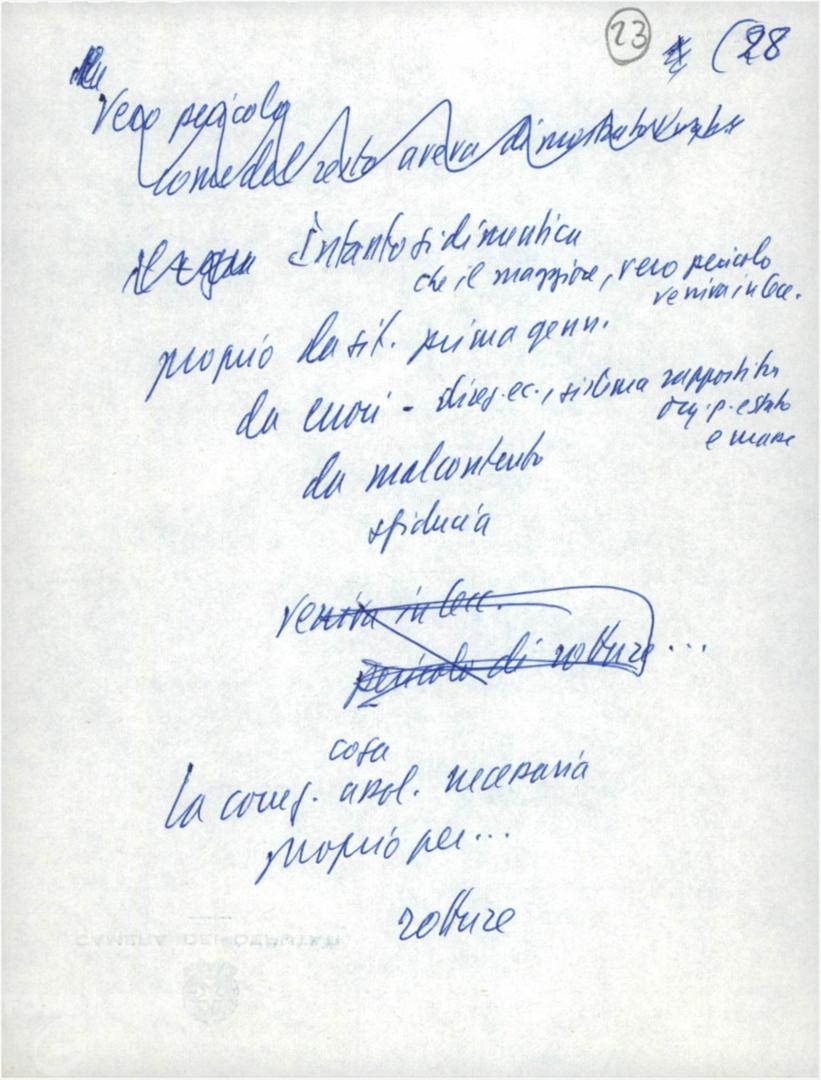 23 (28
vero pericolo
come del resto aveva dimostrato
il Intanto si dimentica
che il maggiore, vero pericolo
veniva in Cec.
proprio da sit. prima genn.
da errori - direz. ec., sistema rapporti tra
org. p. e stato
e masse
da malcontento
sfiducia
veniva in Cec.
pericolo di rotture...
cosa
la correz. assol. necessaria
proprio per...
rotture
CAMERA DEI DEPUTATI